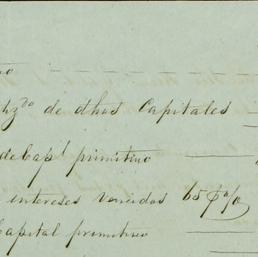 de dhos Capitales
de Cap.l primitivo
intereses vencidos 65 p%
Capital primitivo